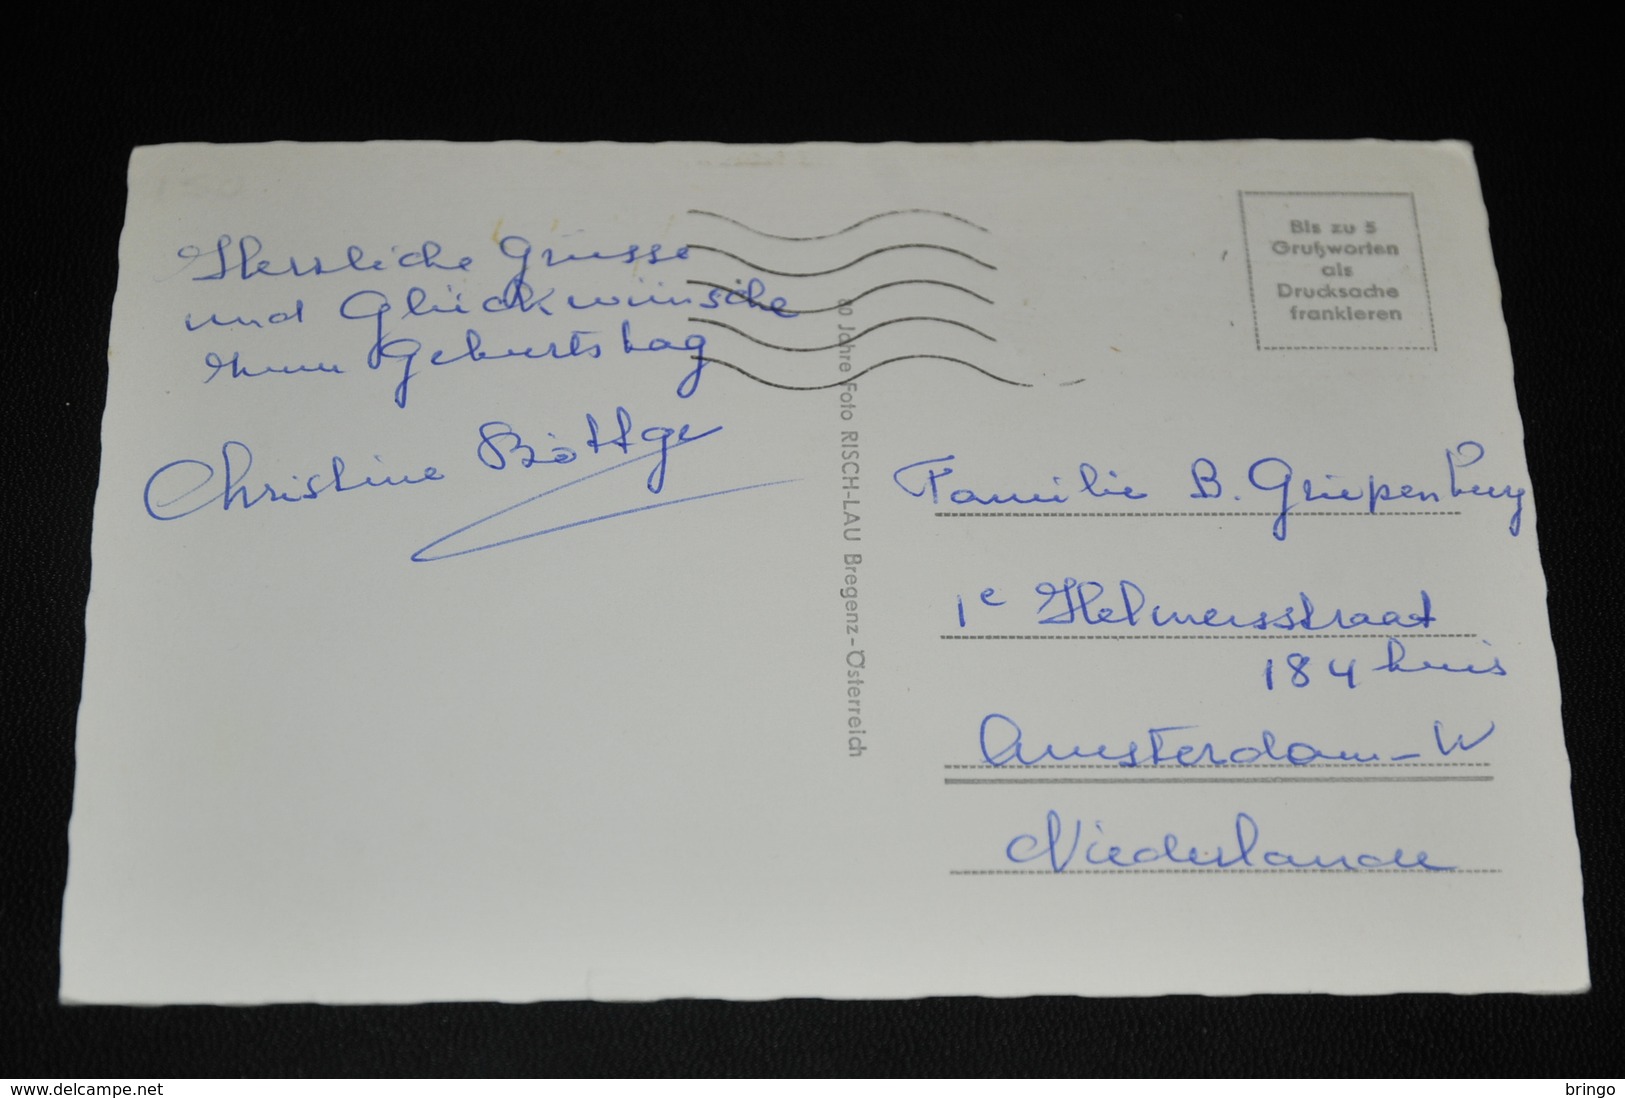 Herzliche Grüsse
und Glückwünsche
zum Geburtstag
Christine Böttge
80 Jahre Foto RISCH-LAU Bregenz-Österreich
Bis zu 5
Grußworten
als
Drucksache
frankieren
Familie B. Griepenburg
1e Helmersstraat
184 huis
Amsterdam-W
Niederlande
www.delcampe.net
bringo